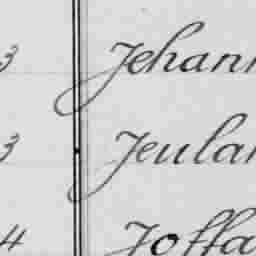 3 Jehann
3 Jeulan
4 Joffa